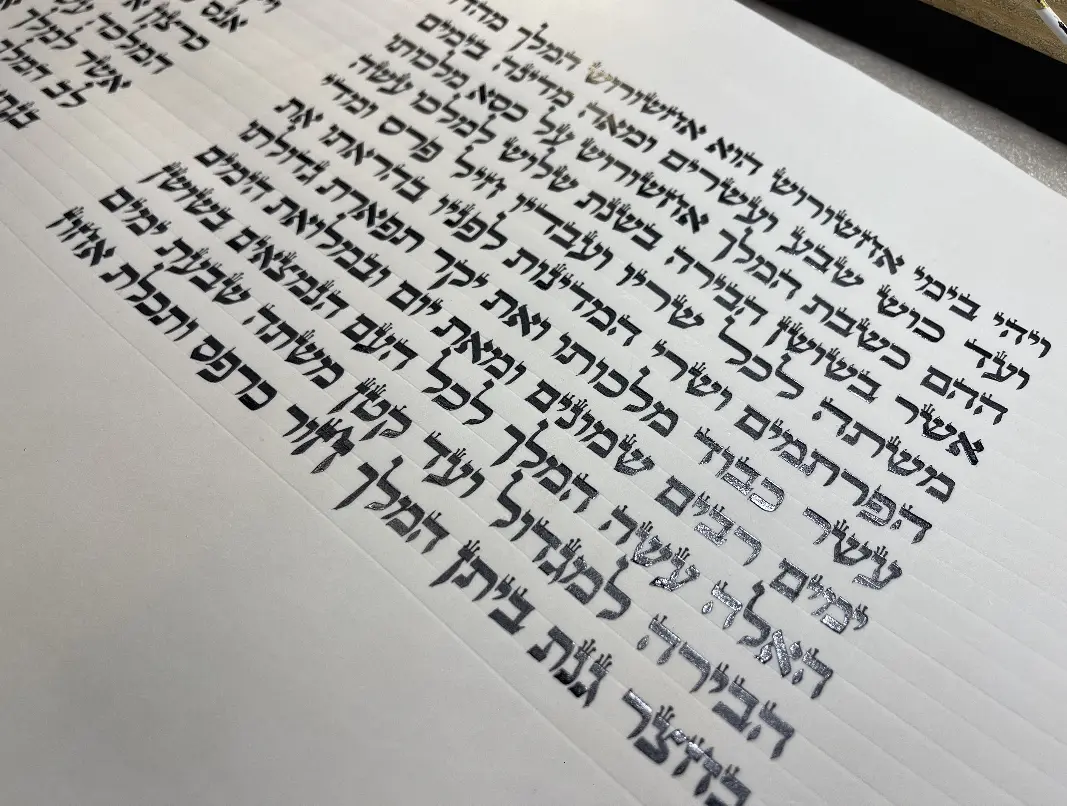 ויהי בימי אחשורוש הוא אחשורוש המלך מהדו
ועד כוש שבע ועשרים ומאה מדינה בימים
ההם כשבת המלך אחשורוש על כסא מלכותו
אשר בשושן הבירה בשנת שלוש למלכו עשה
משתה לכל שריו ועבדיו חיל פרס ומדי
הפרתמים ושרי המדינות לפניו בהראתו את
עשר כבוד מלכותו ואת יקר תפארת גדולתו
ימים רבים שמונים ומאת יום ובמלואת הימים
האלה עשה המלך לכל העם הנמצאים בשושן
הבירה למגדול ועד קטן משתה שבעת ימים
בחצר גנת ביתן המלך חור כרפס ותכלת אחוז
אנס
כרצון
המלכה
אשר למלך
לב המלך